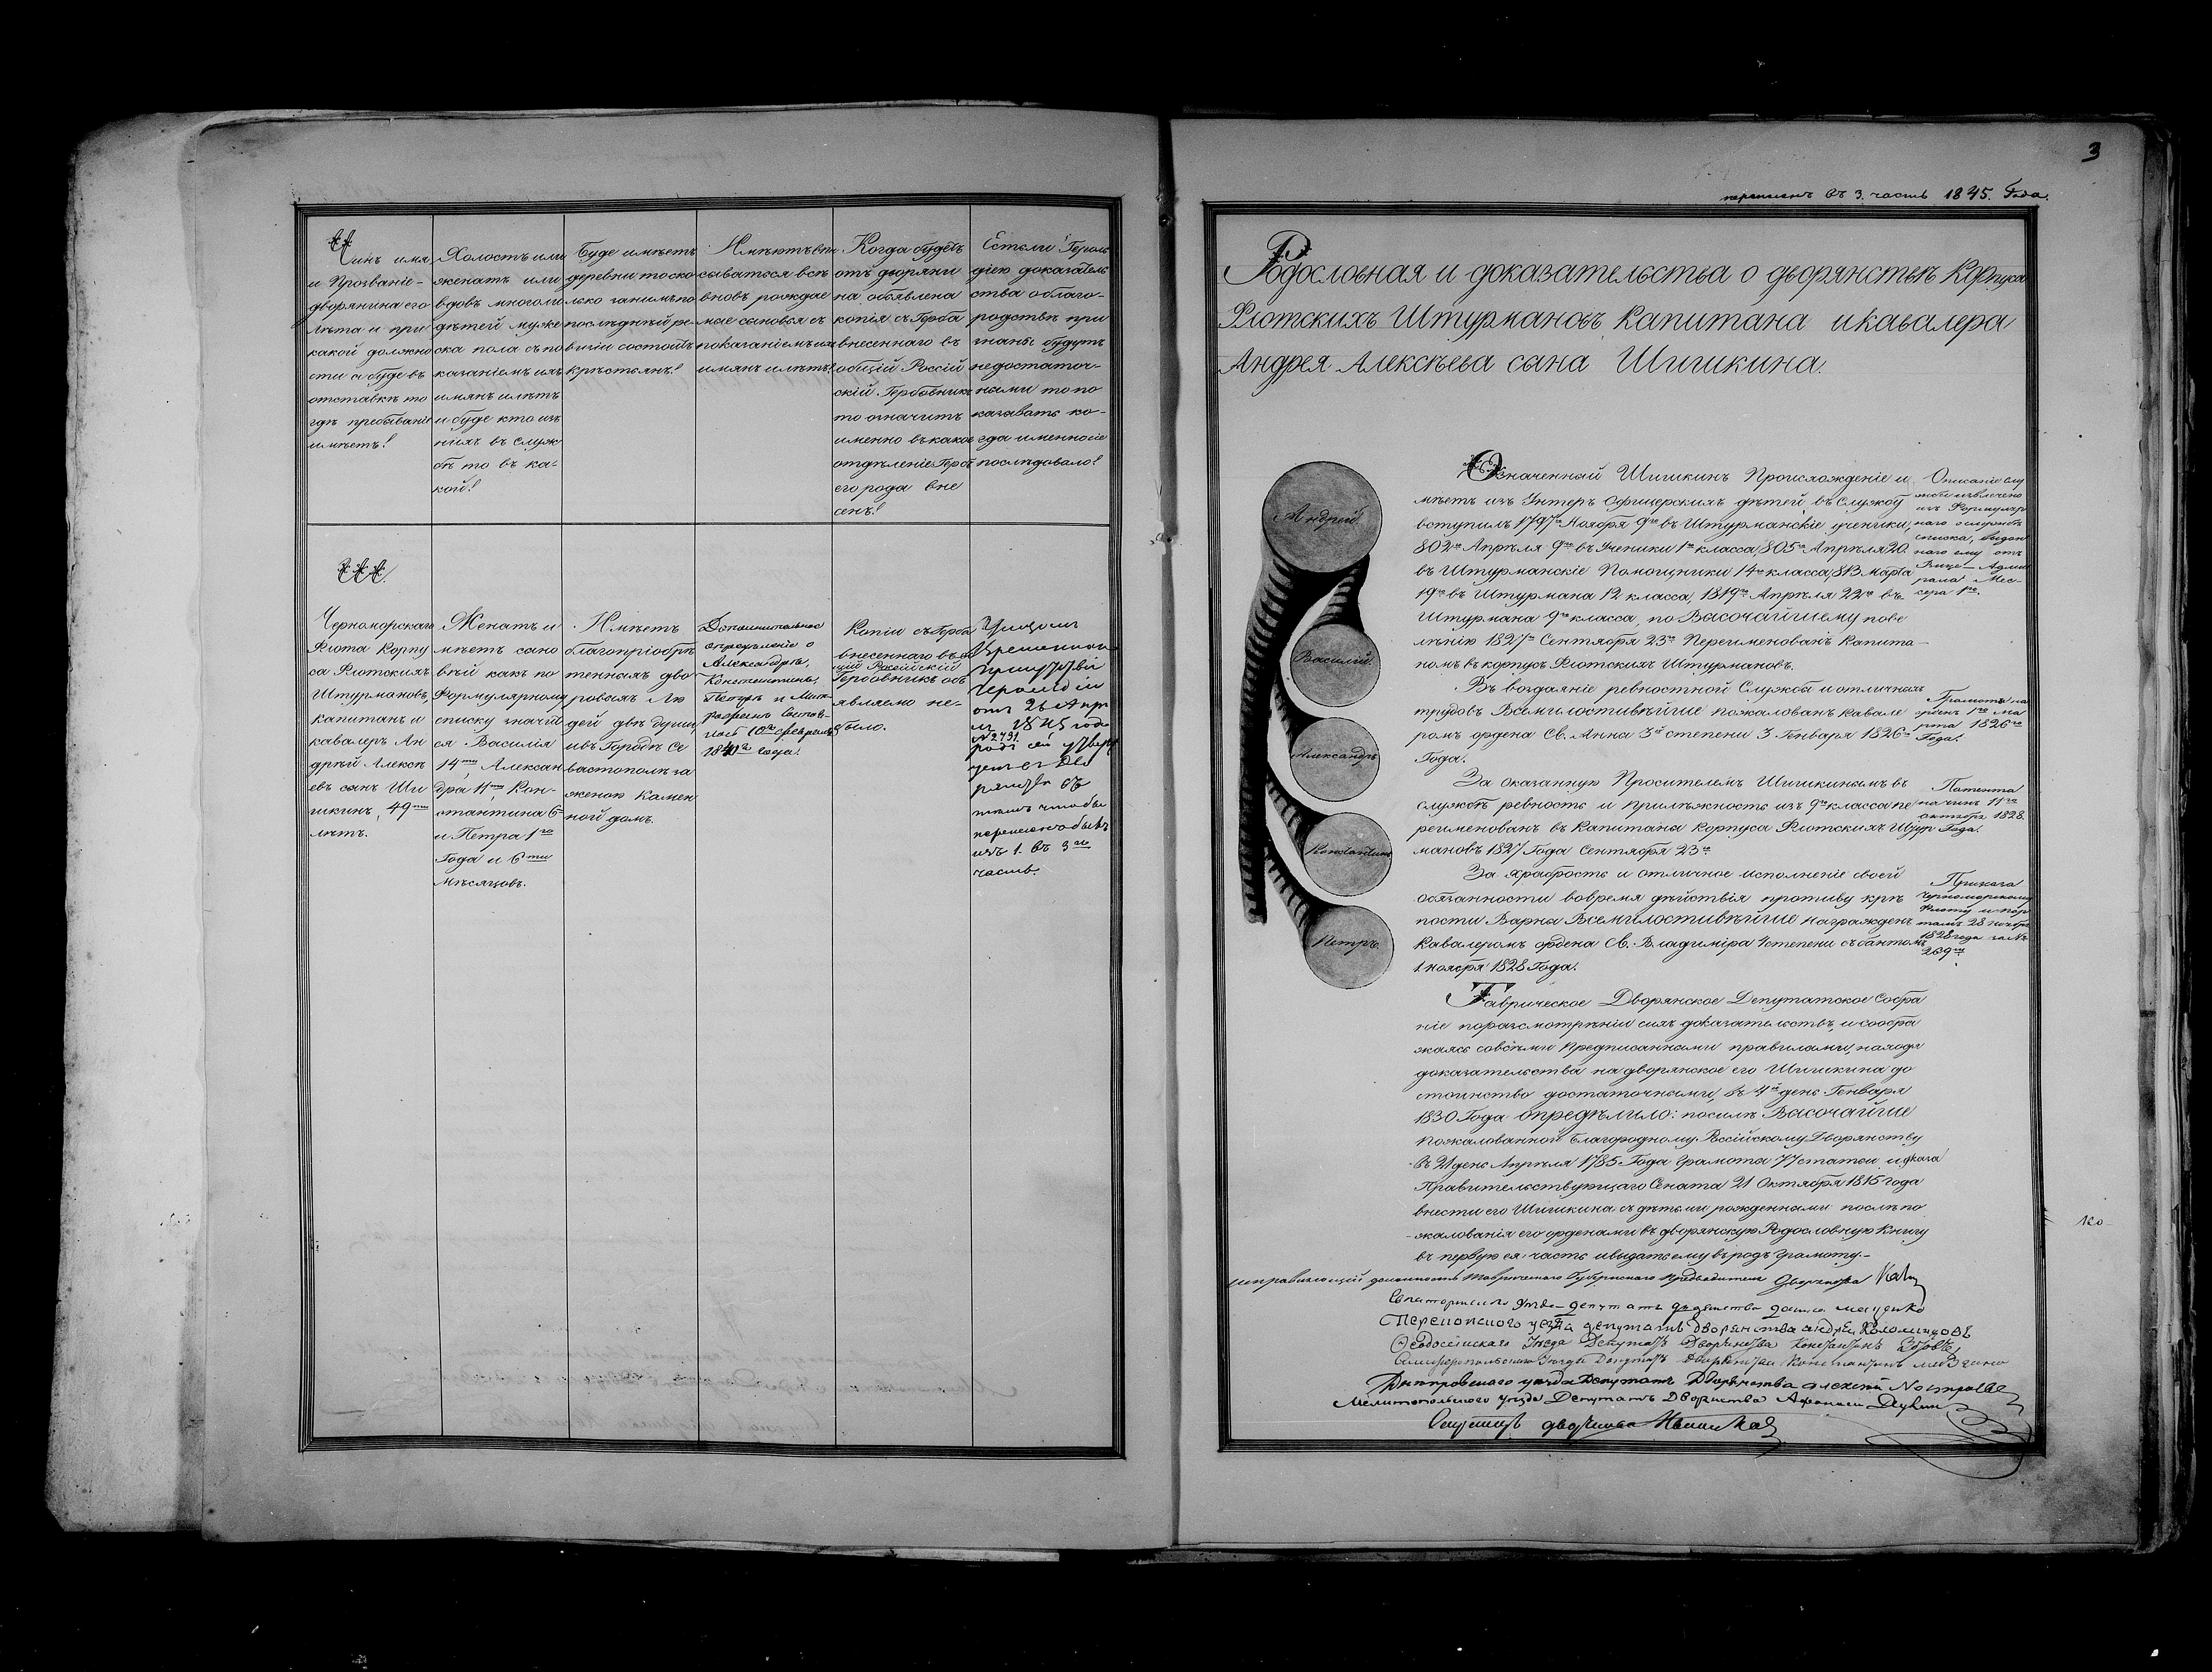 Чинъ имя
и Прозваніе
дворянина его
лѣта и при
какой должно
сти а буде въ
отставкѣ то
гдѣ пребываніе
имѣетъ!
Холостъ или
женатъ или
вдовъ много ли
дѣтей муже
ска пола съ по
казаніемъ ихъ
имянъ и лѣтъ
и буде кто изъ
нихъ въ служ
бѣ то въ ка-
кой!
Буде имѣетъ
деревни то ско
лько за нимъ по
послѣдней ре
визіи состоитъ
крѣстьянъ!
Имѣютъ впи
сываться всѣ
вновь рождае
мые сыновья съ
показаніемъ ихъ
имянъ и лѣтъ!
Когда будетъ
отъ дворяни
на объявлена
копія съ Герба
внесеннаго въ
общій Россій
скій Гербовникъ
то означить
именно въ какое
отдѣленіе Гербъ
его рода вне
сенъ!
Естьли Героль
діею доказатель
ства о благо-
родствѣ при
знаны будутъ
недостаточ-
ными то по
казывать ко-
гда именно сіе
послѣдовало!
Черноморскаго
Флота Корпу
са Флотскихъ
Штурмановъ,
капитанъ и
кавалеръ Ан
дрей Алексѣ
евъ сынъ Ши
шкинъ, 49ти
лѣтъ.
Женатъ и
имѣетъ сыно
вей какъ по
Формулярному
списку значит
ся Василія
14ти, Алексан
дра 11ти, Кон-
стантина 6
и Петра 1го
Года и 6ти
мѣсяцовъ.
Имѣетъ
благопріобрѣ
тенныхъ дво
ровыхъ Лю
дей двѣ души,
и въ Городѣ Се
вастополѣ за
женою Камен
ной домъ.
Дополнительное
опредѣленіе о
Александрѣ,
Константинѣ,
Петрѣ и
состоя-
лось 10го февраля
1841го года.
Копіи съ Герба
внесеннаго въ об
щій Россійскій
Гербовникъ объ
являемо не-
было.
Указомъ
Временнаго
Присутствія
Герольдіи
отъ 26 Апрѣ
ля 1845 года
№ 2431.
родъ сей утверж
денъ въ Дво
рянствѣ съ
тѣмъ чтобы
перенесенъ былъ
изъ 1. въ 3ю
часть.
3
перенесенъ въ 3. часть 1845. Года.
Родословная и доказательства о дворянствѣ Корпуса
Флотскихъ Штурмановъ Капитана и кавалера
Андрея Алексѣева сына Шишкина.
Андрей.
Василій.
Александръ
Константинъ
Петръ.
Означенный Шишкинъ Происхожденіе и
мѣетъ изъ Унтеръ Офицерскихъ дѣтей, въ Службу
вступилъ 1797го Ноября 9го въ Штурманскіе ученики,
802го Апрѣля 9го въ Ученики 1го класса, 805го Апрѣля 20
въ Штурманскіе Помощники 14го класса, 813 Марта
19го въ Штурмана 12 класса, 1819го Апрѣля 22го въ
Штурмана 9го класса, по Высочайшему пове
лѣнію 1827го Сентября 23го Переименованъ Капита-
номъ въ корпусъ Флотскихъ Штурмановъ.
Въ воздаяніе ревностной Службы и отличныхъ
трудовъ Всемилостивѣйше пожалованъ Кавале
ромъ ордена Св. Анны 3й степени 3 Генваря 1826го
Года.
За оказанную Просителемъ Шишкинымъ въ
службѣ ревность и прилѣжность изъ 9го класса пе
реименованъ въ Капитана Корпуса Флотскихъ Штур
мановъ 1827 Года Сентября 23го
За храбрость и отличное исполненіе своей
обязанности вовремя дѣйствія противу крѣ
пости Варны Всемилостивѣйше награжденъ
Кавалеромъ ордена Св. Владиміра 4 степени съ бантомъ
1. ноября 1828 Года.
Описаніе слу
жбы извлечено
изъ Формуляр
наго о службѣ
списка, выдан
наго ему отъ
Вице-Адми
рала Мес-
сера 1го.
Грамоты на
орденъ 1го Ма
рта 1826го
Года.
Патента
на чинъ 11го
октября 1828
Года.
Приказа
Черноморскому
Флоту и пор
тамъ 28 ноября
1828 года за №
269м
Таврическое Дворянское Депутатское Собра
ніе поразсмотрѣніи сихъ доказательствъ, и сообра
жаясь совсѣми Предписанными правилами, находя
доказательства на дворянское его Шишкина до
стоинство достаточными, въ 4й день Генваря
1830 Года опредѣлило: посилѣ Высочайше
пожалованной Благородному Россійскому Дворянству
въ 21 день Апрѣля 1785 Года Грамоты 77 статьи и указа
Правительствующаго Сената 21 Октября 1815 года
внести его Шишкина съ дѣтьми рожденными послѣ по
жалованія его орденами въ дворянскую Родословную Книгу
въ первую ея часть и выдать ему въ родъ Грамоту.-
исправляющій должность Таврическаго Губернскаго предводителя Дворянства
Евпаторійскаго уѣзда депутатъ дворянства
Перекопскаго уезда депутатъ дворянства андрей Коломийцовъ
Ѳеодосійскаго уезда Депутатъ Дворянства Константинъ
Симферопольскаго уезда Депутатъ Дворянства Константинъ
Днепровскаго уезда Депутатъ Дворянства алексей
Мелитопольскаго уезда Депутатъ Дворянства Афанасій
Секретарь дворянства